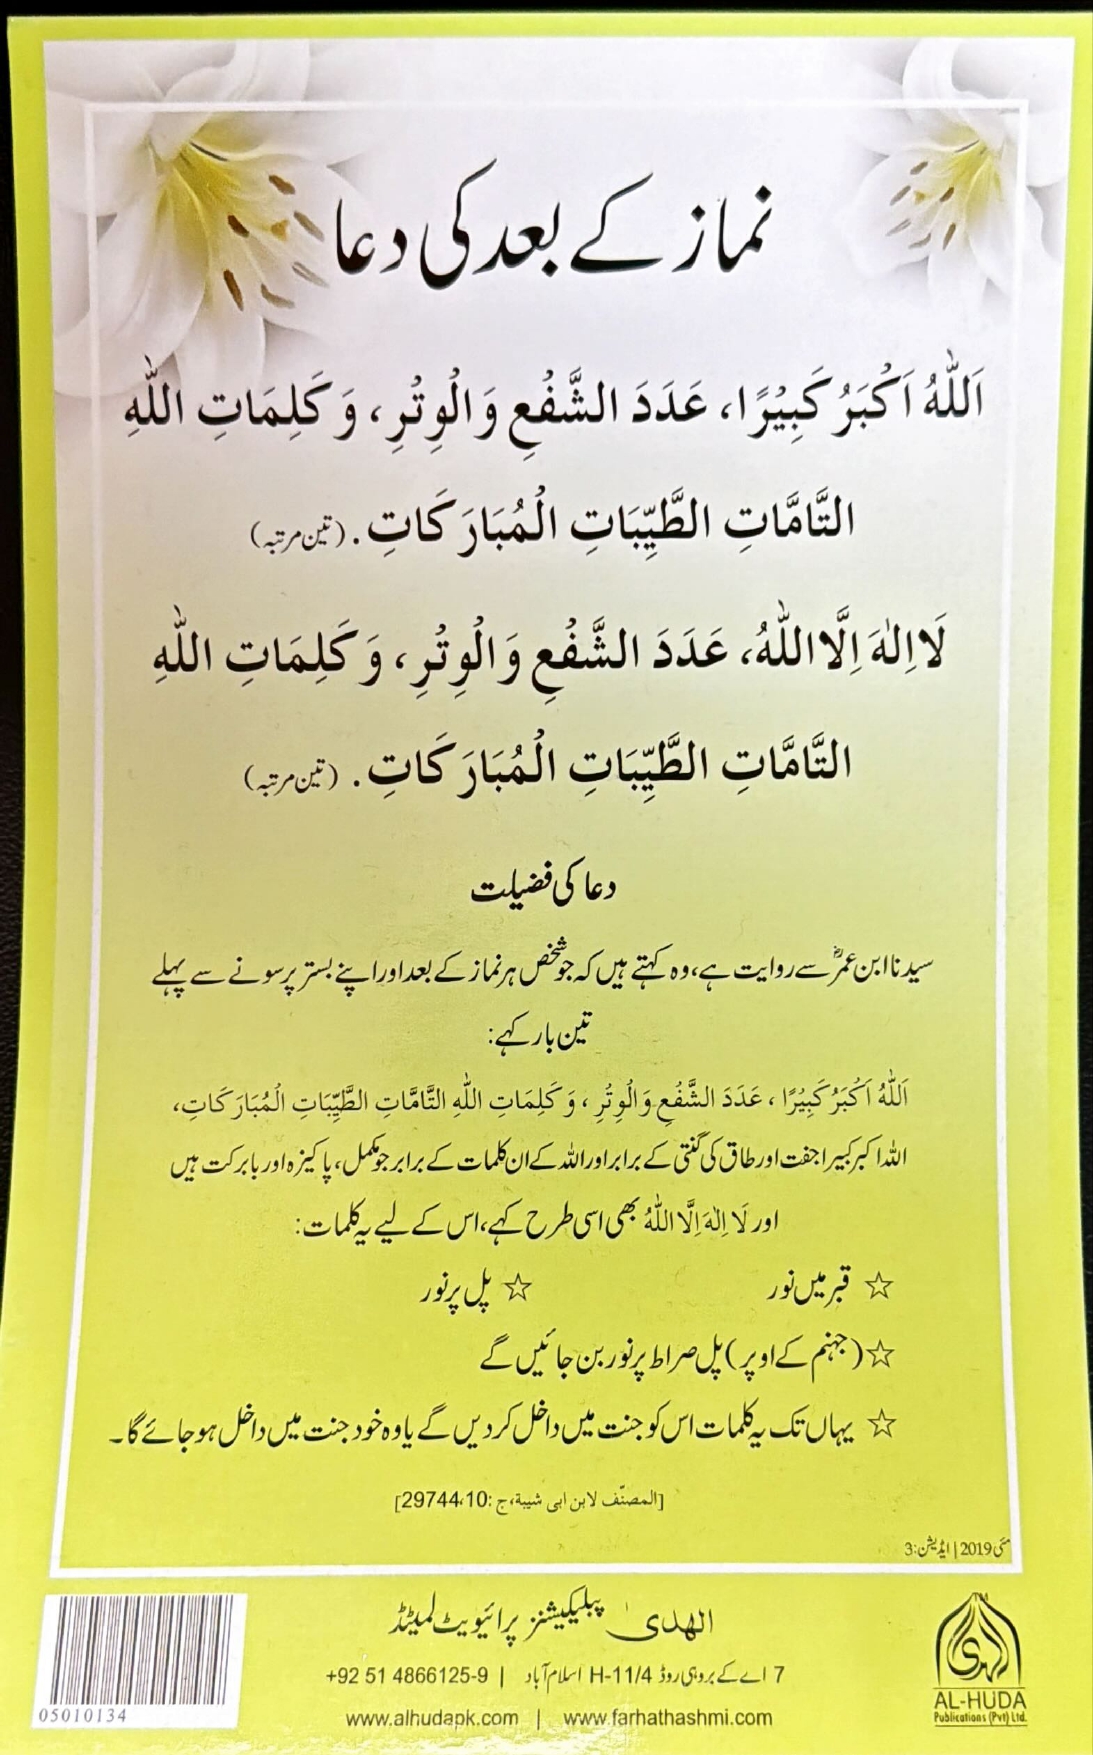 نماز کے بعد کی دعا
اَللّٰهُ اَكْبَرُ كَبِيْرًا، عَدَدَ الشَّفْعِ وَ الْوِتْرِ، وَ كَلِمَاتِ اللّٰهِ
التَّامَّاتِ الطَّيِّبَاتِ الْمُبَارَكَاتِ. (تین مرتبہ)
لَا اِلٰهَ اِلَّا اللّٰهُ، عَدَدَ الشَّفْعِ وَ الْوِتْرِ، وَ كَلِمَاتِ اللّٰهِ
التَّامَّاتِ الطَّيِّبَاتِ الْمُبَارَكَاتِ. (تین مرتبہ)
دعا کی فضیلت
سیدنا ابن عمرؓ سے روایت ہے، وہ کہتے ہیں کہ جو شخص ہر نماز کے بعد اور اپنے بستر پر سونے سے پہلے
تین بار کہے:
اَللّٰهُ اَكْبَرُ كَبِيْرًا ، عَدَدَ الشَّفْعِ وَ الْوِتْرِ ، وَ كَلِمَاتِ اللّٰهِ التَّامَّاتِ الطَّيِّبَاتِ الْمُبَارَكَاتِ،
اللہ اکبر کبیرا جفت اور طاق کی گنتی کے برابر اور اللہ کے ان کلمات کے برابر جو مکمل، پاکیزہ اور بابرکت ہیں
اور لَا اِلٰهَ اِلَّا اللّٰهُ بھی اسی طرح کہے، اس کے لیے یہ کلمات:
☆ قبر میں نور ☆ پل پر نور
☆ (جہنم کے اوپر) پل صراط پر نور بن جائیں گے
☆ یہاں تک یہ کلمات اس کو جنت میں داخل کر دیں گے یا وہ خود جنت میں داخل ہو جائے گا۔
[المصنّف لابن ابی شیبة، ج:10، 29744]
مئی 2019 | ایڈیشن: 3
الھدیٰ پبلیکیشنز پرائیویٹ لمیٹڈ
7 اے کے بروہی روڈ H-11/4 اسلام آباد | +92 51 4866125-9
www.alhudapk.com | www.farhathashmi.com
05010134
الهدى
TM
AL-HUDA
Publications (Pvt) Ltd.